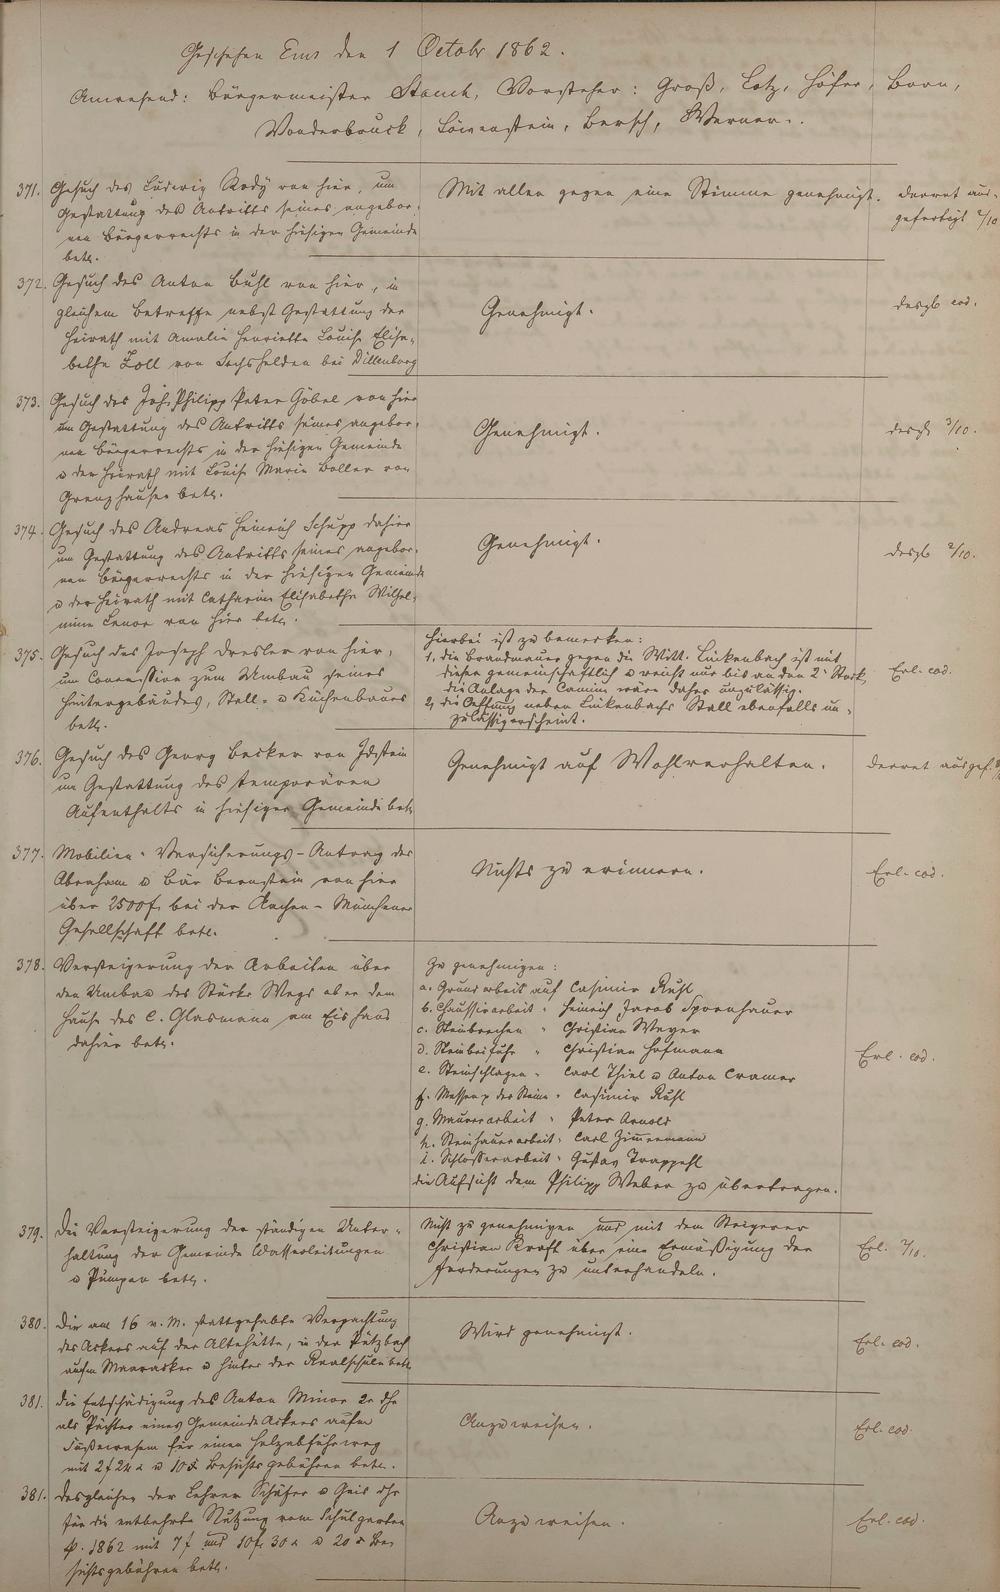 Geschehen Ems den 1 Octobr 1862.
Anwesend: Bürgermeister Stauch, Vorsteher: Groß, Lotz, Höfer, Born,
Vonderbruck, Löwenstein, Bersch, Werner.
371. Gesuch des Ludwig Rody von hier, um
Gestattung des Antritts seines angebor-
nen Bürgerrechts in der hiesigen Gemeinde
betr.
Mit allen gegen eine Stimme genehmigt.
Decret aus-
gefertigt 2/10
372. Gesuch des Anton Buhl von hier, in
gleichem Betreffe nebst Gestattung der
Heirath mit Amalie Henriette Louise Elisa-
bethe Zoll von Sechshelden bei Dillenburg
Genehmigt.
desgl. eod.
373. Gesuch des Joh. Philipp Peter Göbel von hier
um Gestattung des Antritts seines angebor-
nen Bürgerrechts in der hiesigen Gemeinde
u der Heirath mit Louise Marie Boller von
Grenzhausen betr.
Genehmigt.
desgl. 3/10.
374. Gesuch des Andreas Heinrich Schupp dahier
um Gestattung des Antritts seines angebor-
nen Bürgerrechts in der hiesigen Gemeinde
u der Heirath mit Catharine Elisabethe Wilhel-
mine von hier betr.
Genehmigt.
desgl. 2/10.
375. Gesuch des Joseph Dresler von hier,
um Concession zum Umbau seines
Hintergebäudes, Stall- u Küchenbaues
betr.
Hierbei ist zu bemerken:
1, die Brandmauer gegen die Witt. Linkenbach ist mit
dieser gemeinschaftlich u reicht nur bis an den 2. Stock,
die Anlage der Camine wäre daher unzulässig.
2, die Oeffnung neben Linkenbachs Stall ebenfalls un-
zulässig erscheint.
Erl. eod.
376. Gesuch des Georg Becker von Idstein
um Gestattung des temporären
Aufenthalts in hiesiger Gemeinde betr.
Genehmigt auf Wohlverhalten.
Decret ausgef.
377. Mobilien-Versicherungs-Antrag des
Abraham u Bär Bernstein von hier
über 2500 f. bei der Aachen-Münchener
Gesellschaft betr.
Nichts zu erinnern.
Erl. eod.
378. Versteigerung der Arbeiten über
den Umbau des Wegs ober dem
Hause des C. Glasmann am Eishaus
dahier betr.
Zu genehmigen:
a. Grundarbeit auf Casimir Ruhl
b. Chaussirarbeit " Heinrich Jacob Spornhauer
c. Steinbrechen " Christian Weyer
d. Steinbeifuhr " Christian Hofmann
e. Steinschlagen " Carl Thiel u Anton Cramer
f. Messen der Steine " Casimir Ruhl
g. Maurerarbeit " Peter Arnold
h. Steinhauerarbeit " Carl Zimmermann
i. Schlosserarbeit " Gustav Trappehl
die Aufsicht dem Philipp Weber zu übertragen.
Erl. eod.
379. Die Versteigerung der ständigen Unter-
haltung der Gemeinde Wasserleitungen
u Pumpen betr.
Nicht zu genehmigen und mit dem Steigerer
Christian Kraft über eine Ermäßigung der
Forderungen zu unterhandeln.
Erl. 7/10.
380. Die am 16 v. M. stattgehabte Verpachtung
des Ackers auf der Altehütte, in der Pützbach
aufm Maaracker u hinter der Realschule betr.
Wird genehmigt.
Erl. eod.
381. Die Entschädigung des Anton Minor 2r dhr
als Pächter eines Gemeinde Ackers aufm
für einen Holzabfuhrweg
mit 2 f 24 x u 10 x Besichtsgebühren betr.
Anzuweisen.
Erl. eod.
381. Desgleichen der Lehrer Schäfer u Geis dhr
für die entbehrte Nutzung vom Schulgarten
p. 1862 mit 7 f und 10 f. 30 x u 20 x Be-
sichtsgebühren betr.
Anzuweisen.
Erl. eod.